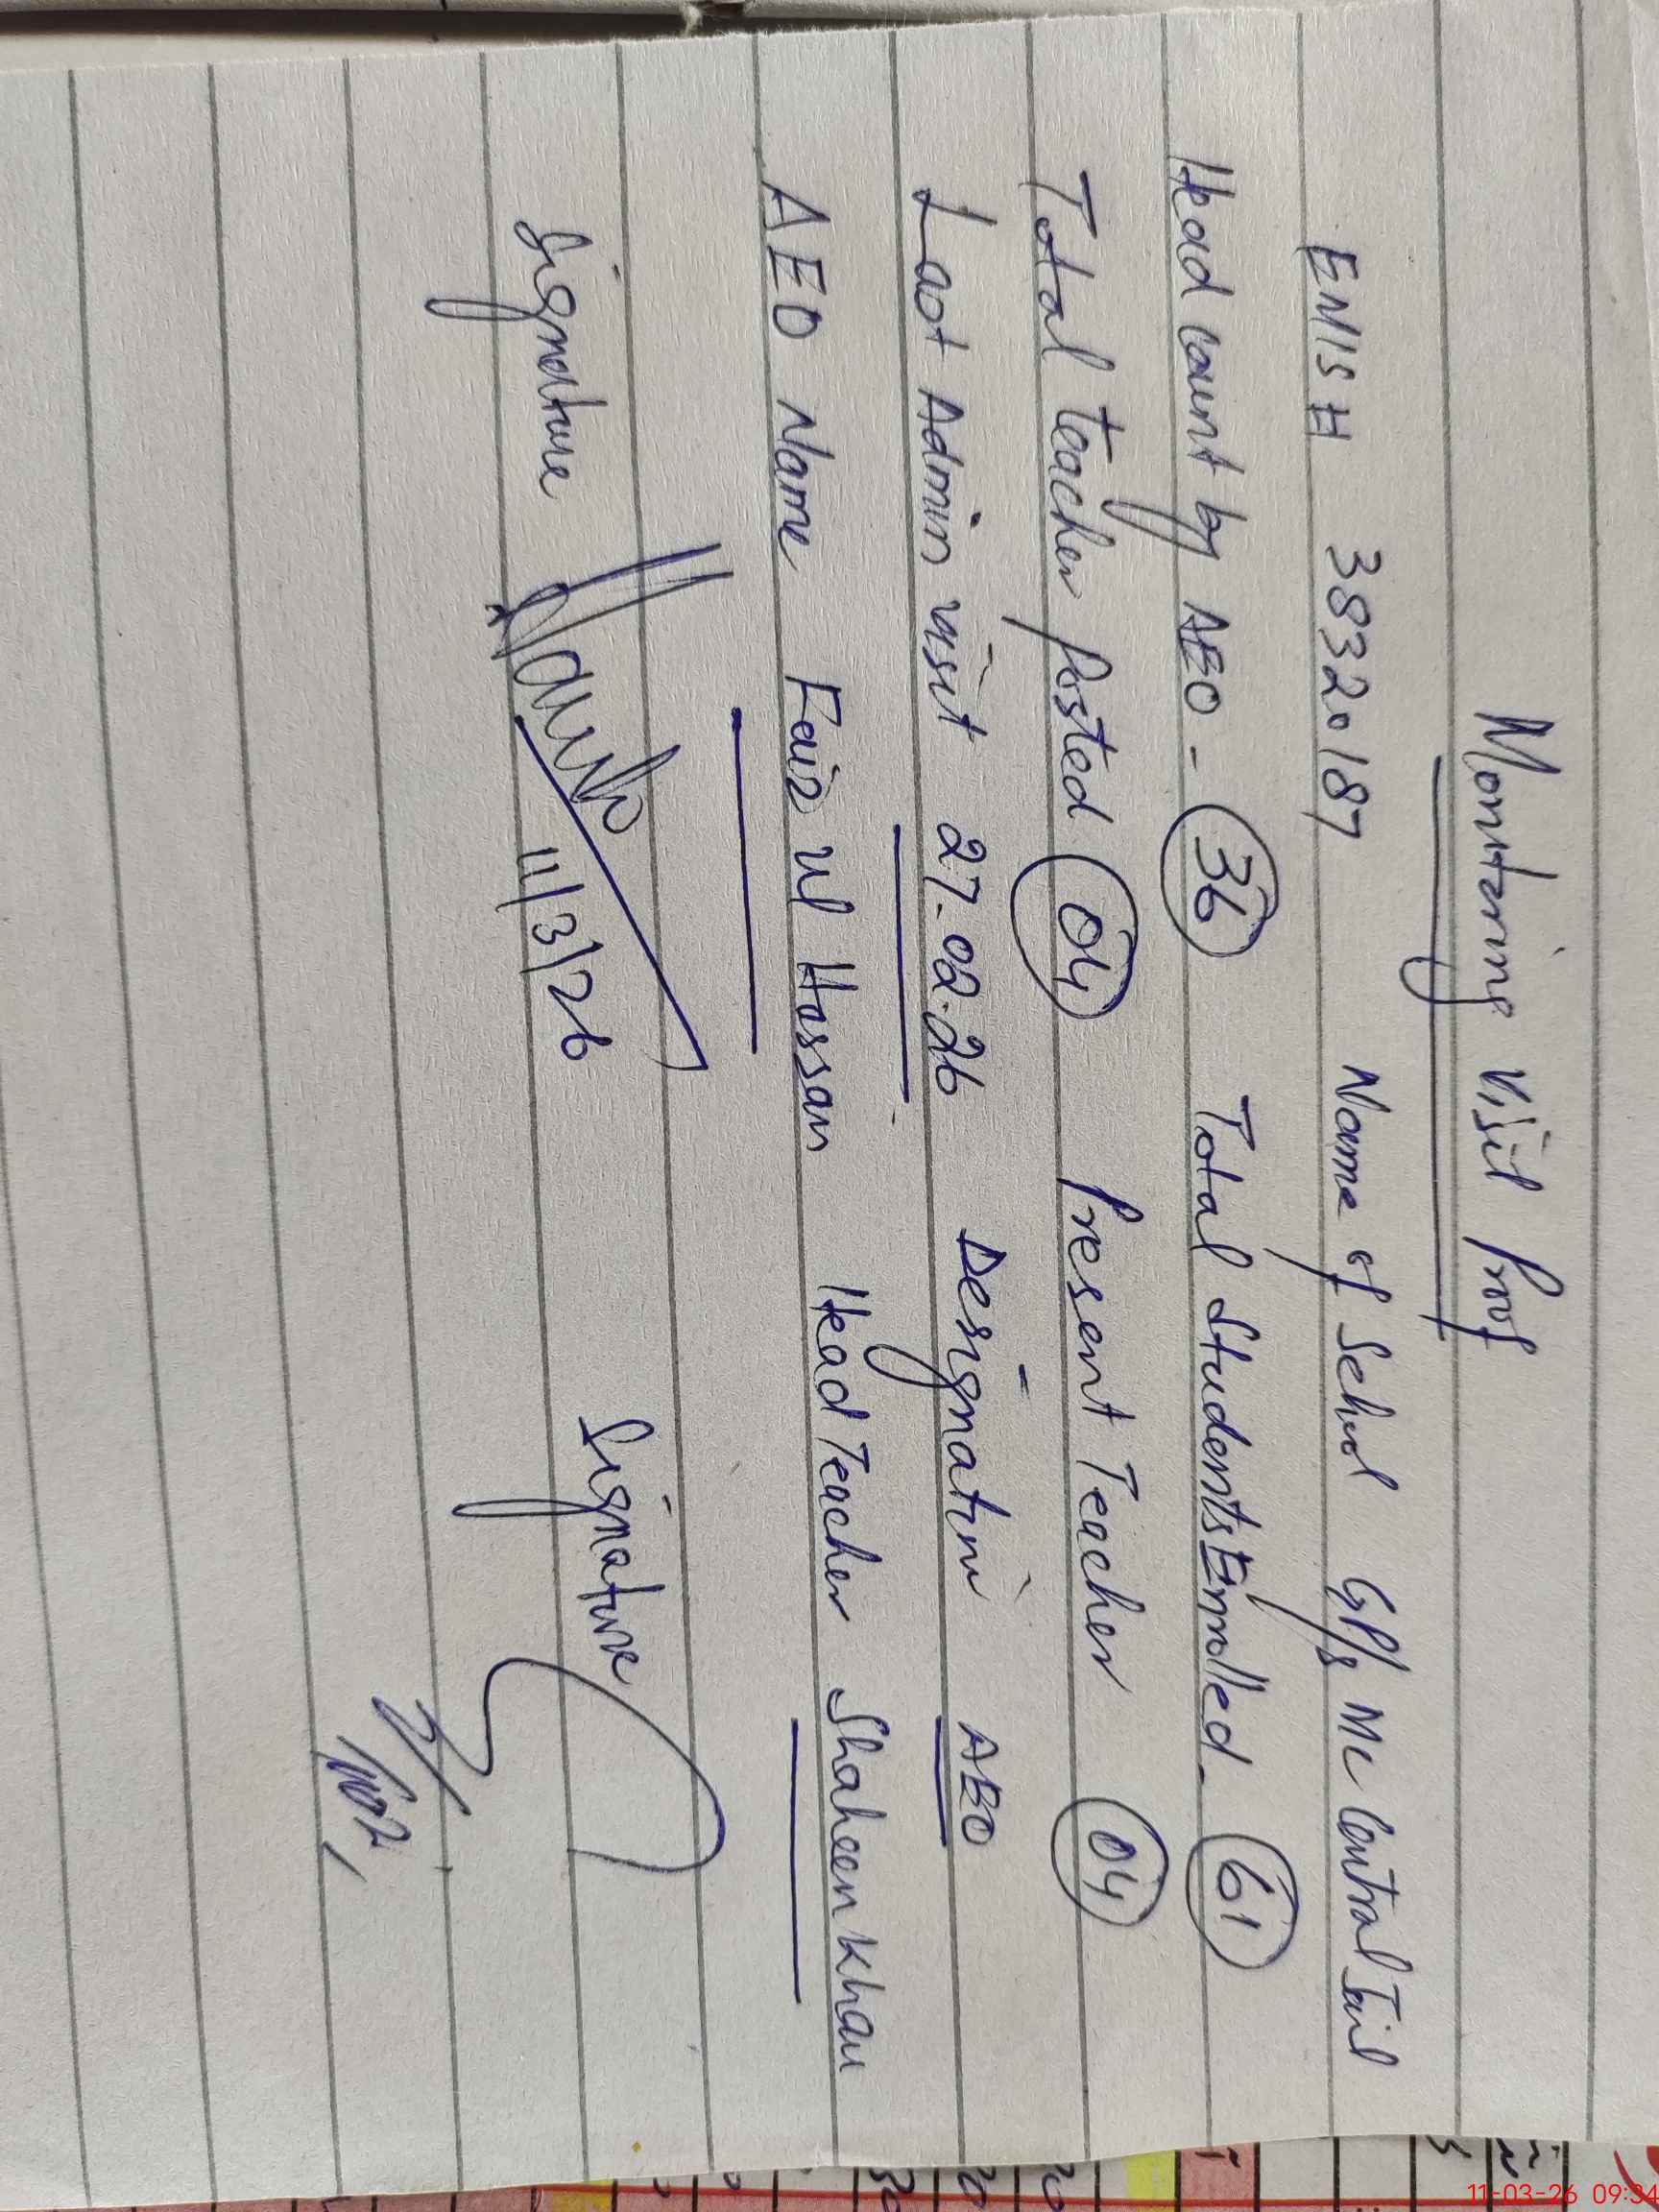 Monitering Visit Proof
EMIS # 38320187 Name of School GP/s MC Central Jail
Head count by AEO - 36 Total Students Enrolled - 61
Total teacher posted 04 Present Teacher 04
Last Admin visit 27-02-26 Designation AEO
AEO Name Faiz ul Hassan Head Teacher Shaheen Khan
Signature 11/3/26 Signature
11-03-26 09:34